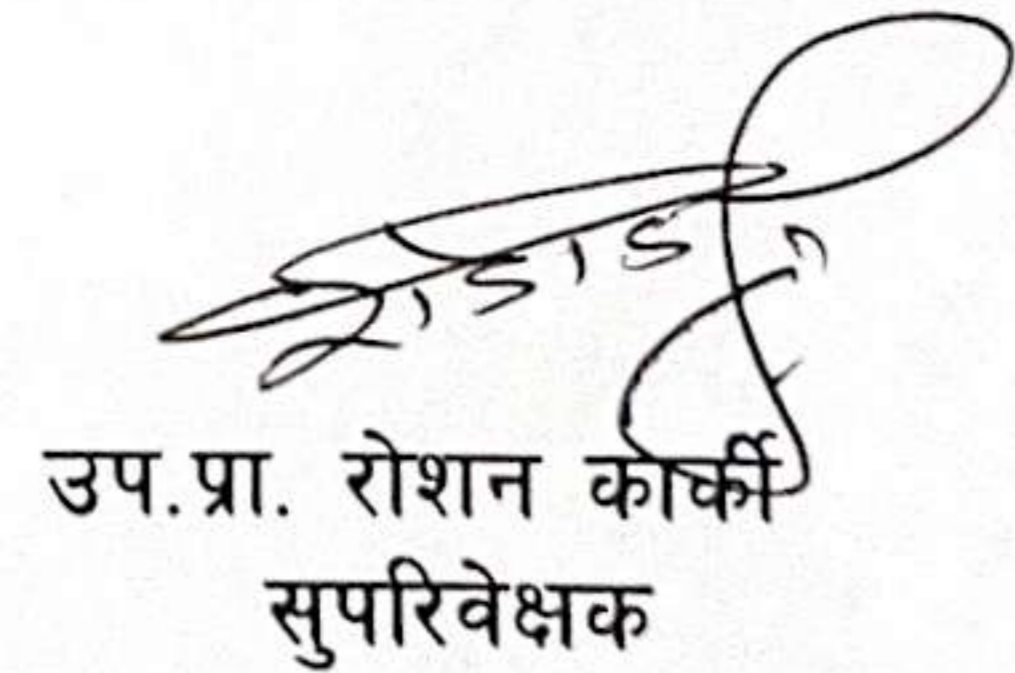 उप.प्रा. रोशन कार्की
सुपरिवेक्षक